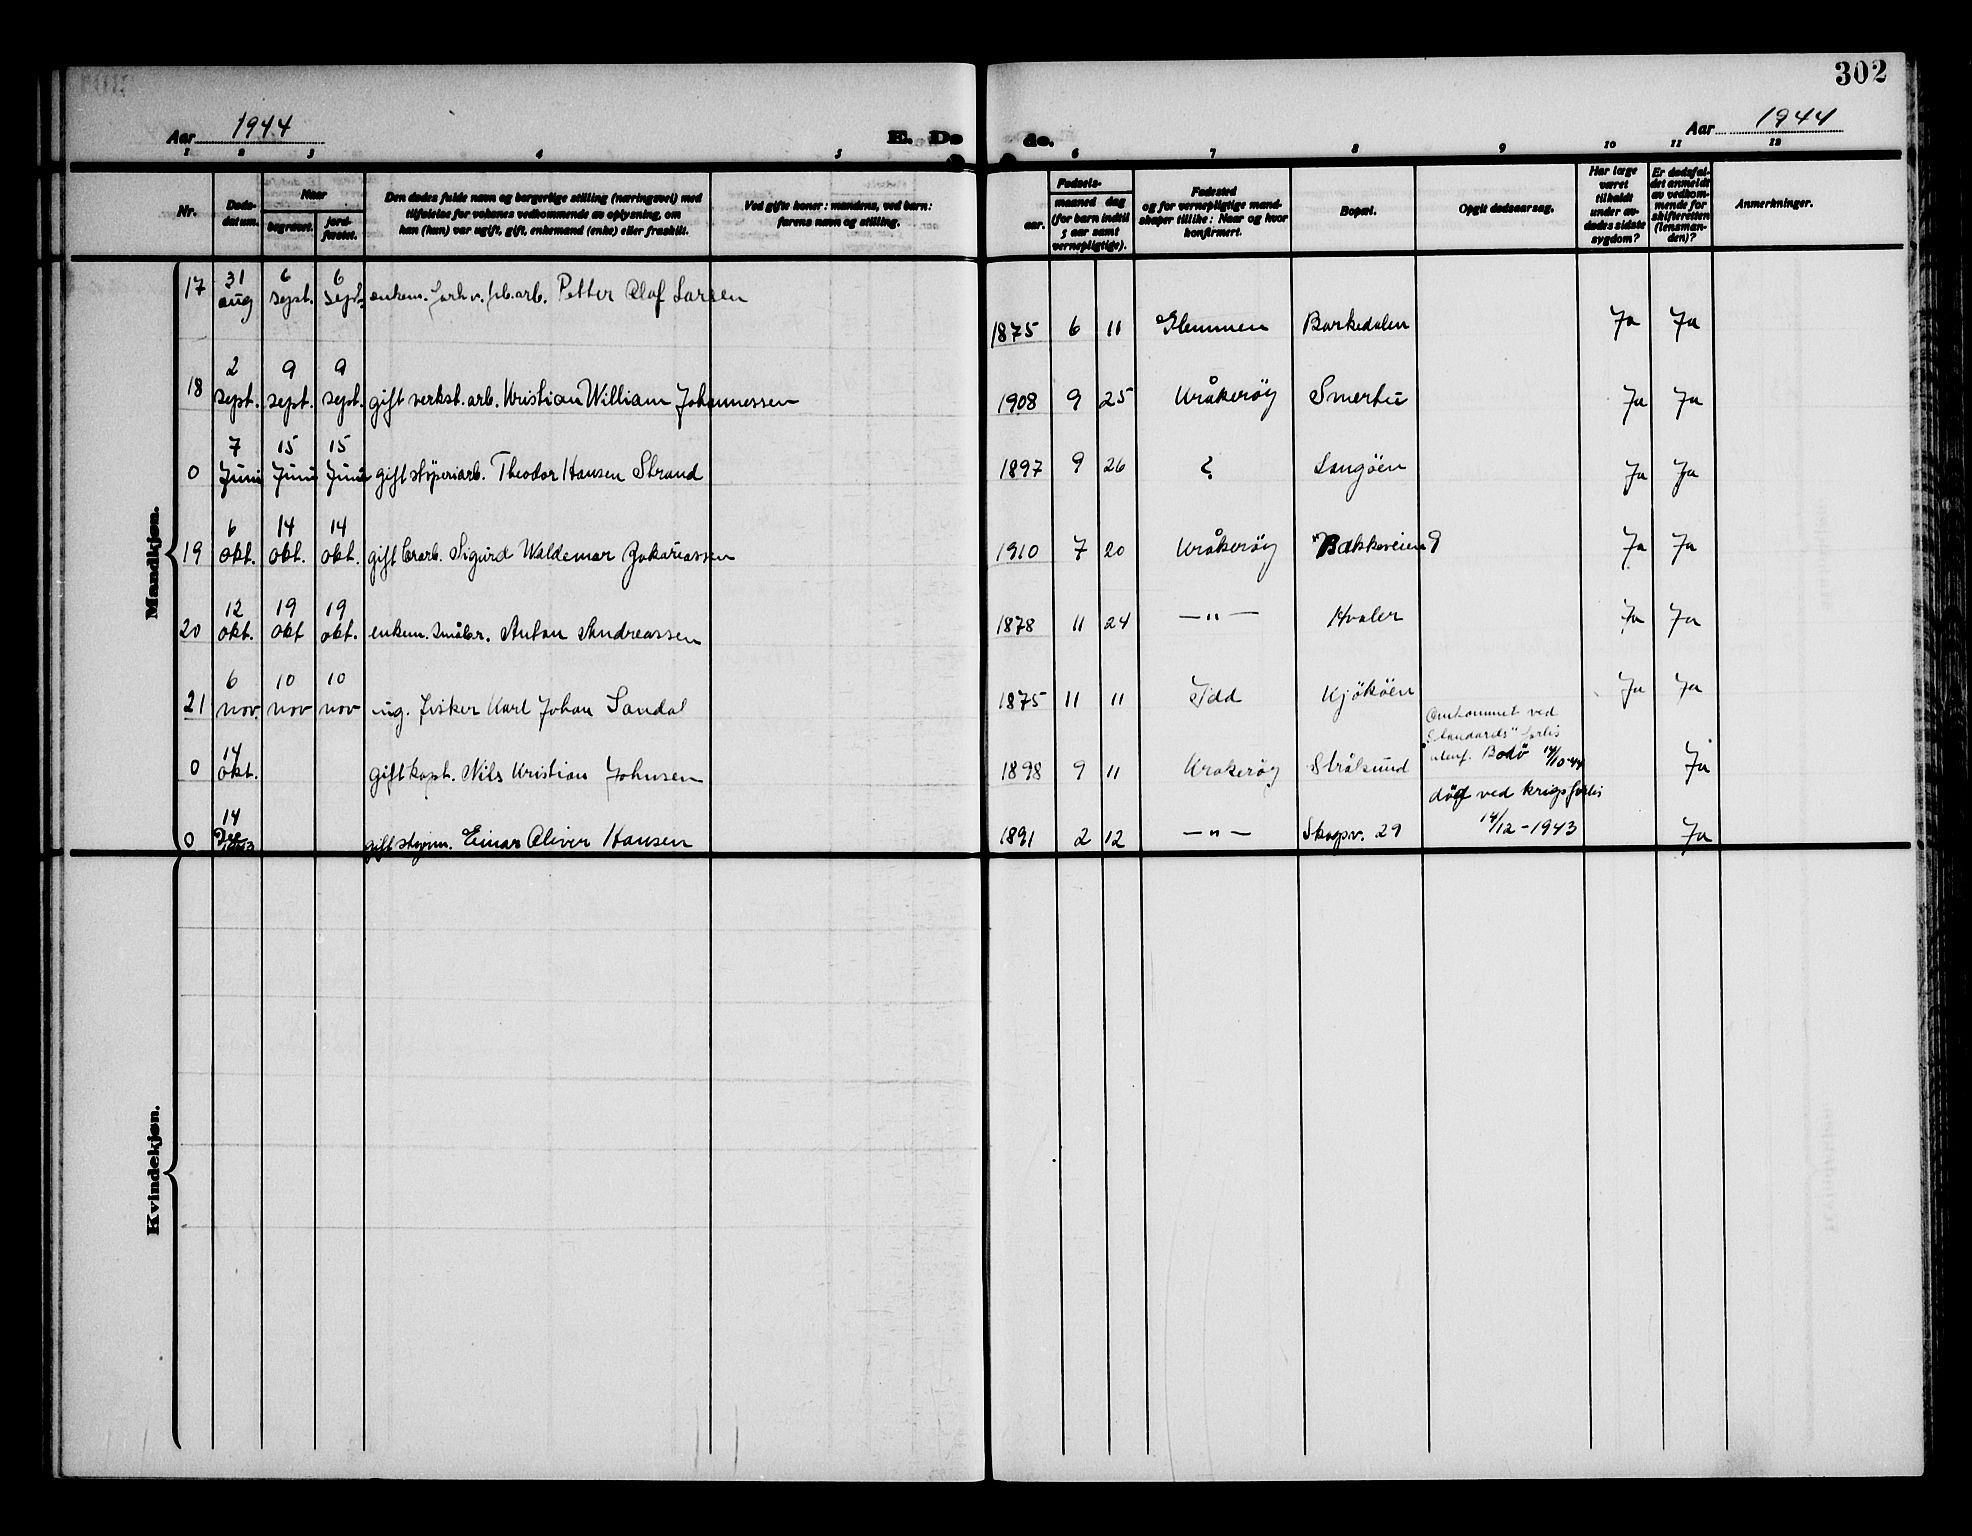 302
Aar 1944
E. Dø
de.
Aar 1944
1 2 3 4 5 6 7 8 9 10 11 12
Nr.
Døds-
datum.
Naar
begravet.
jord-
fæstet.
Den dødes fulde navn og borgerlige stilling (næringsvei) med
tilføielse for voksnes vedkommende av oplysning, om
han (hun) var ugift, gift, enkemand (enke) eller fraskilt.
Ved gifte koner: mandens, ved barn:
farens navn og stilling.
Fødsels-
aar.
maaned dag
(for barn indtil
5 aar samt
vernepligtige).
Fødested
og for vernepligtige mand-
skaper tillike: Naar og hvor
konfirmert.
Bopæl.
Opgit dødsaarsag.
Har læge
været
tilkaldt
under av-
dødes sidste
sygdom?
Er dødsfal-
det anmeldt
av vedkom-
mende for
skifteretten
(lensman-
den)?
Anmerkninger.
Mandkjøn.
17 31 aug 6 sept. 6 sept. enkem. forhv. fb.arb. Petter Olaf Larsen 1875 6 11 Glemmen Barkedalen Ja Ja
18 2 sept. 9 sept. 9 sept. gift verkst. arb. Kristian William Johannessen 1908 9 25 Kråkerøy Smertu Ja Ja
0 7 Juni 15 Juni 15 Juni gift støperiarb. Theodor Hansen Strand 1897 9 26 ? Langøen Ja Ja
19 6 okt. 14 okt. 14 okt. gift Sigurd Waldemar Zakariassen 1910 7 20 Kråkerøy Bakkeveien 9 Ja Ja
20 12 okt. 19 okt 19 okt. enkem. småbr. Anton Andreassen 1878 11 24 —"— Hvaler Ja Ja
21 6 nov. 10 nov 10 nov ug. fisker Karl Johan Sandal 1875 11 11 Idd Kjøkøen Ja Ja
0 14 okt. gift kapt. Nils Kristian Johnsen 1898 9 11 Krakerøy Strålsund Omkommet ved
"Standards" forlis
utenf. Bodø 14/10 44 Ja
0 14 Des 1943 gift styrm. Einar Oliver Hansen 1891 2 12 —"— Skogv. 29 død ved krigsforlis
14/12 - 1943 Ja
Kvindekjøn.